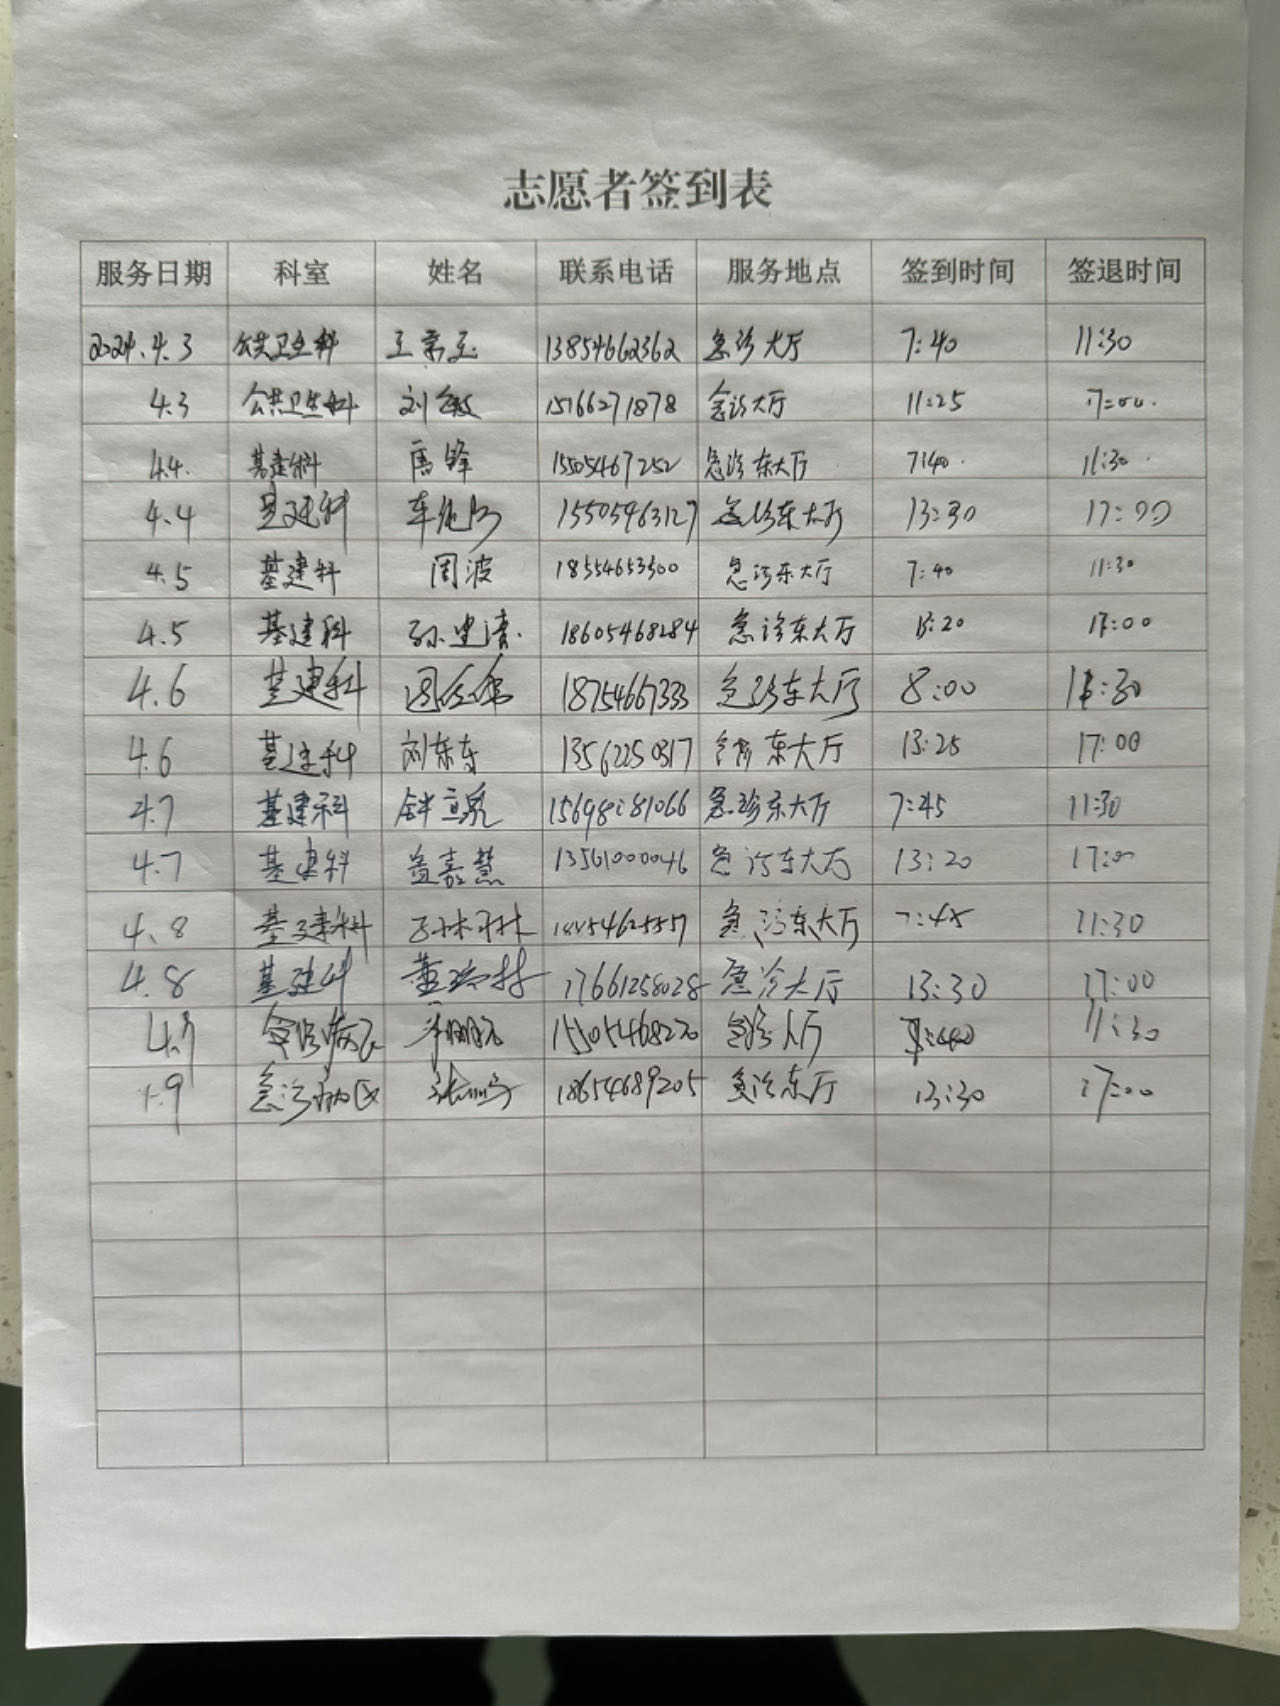 志愿者签到表
服务日期 科室 姓名 联系电话 服务地点 签到时间 签退时间
2024.4.3 公共卫生科 13854662362 急诊大厅 7:40 11:30
4.3 公共卫生科 刘敏 15166271878 急诊大厅 11:25 17:00.
4.4. 基建科 唐锋 15505467252 急诊东大厅 7:40. 11:30.
4.4 基建科 15505463127 急诊东大厅 13:30 17:00
4.5 基建科 周波 18554653500 急诊东大厅 7:40 11:30
4.5 基建科 孙建清 18605468284 急诊东大厅 13:20 17:00
4.6 基建科 18754667333 急诊东大厅 8:00 11:30
4.6 基建科 刘东东 13562250317 东大厅 13:25 17:00
4.7 基建科 15698181066 急诊东大厅 7:45 11:30
4.7 基建科 盖嘉慧 13561000046 急诊东大厅 13:20 17:00
4.8 基建科 急诊东大厅 7:45 11:30
4.8 基建科 17661258028 急诊大厅 13:30 17:00
4.9 急诊病区 15505468220 急诊大厅 7:40 11:30
4.9 急诊病区 18654689205 急诊东厅 13:30 17:00